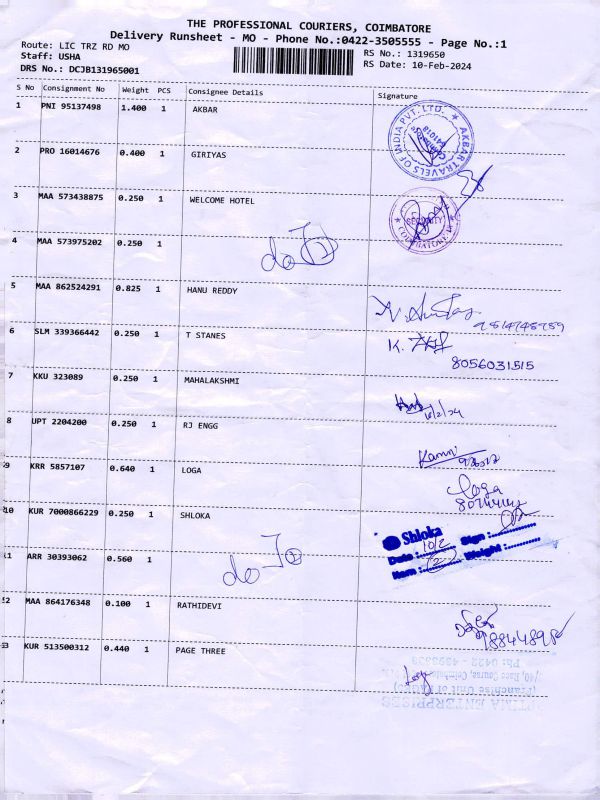 THE PROFESSIONAL COURIERS, COIMBATORE
Delivery Runsheet - MO - Phone No.:0422-3505555 - Page No.:1
Route: LIC TRZ RD MO
RS No.: 1319650
Staff: USHA
RS Date: 10-Feb-2024
DRS No.: DCJB131965001
S No Consignment No Weight PCS Consignee Details Signature
1 PNI 95137498 1.400 1 AKBAR
AKBAR TRAVELS OF INDIA PVT. LTD.
641018
2 PRO 16014676 0.400 1 GIRIYAS
3 MAA 573438875 0.250 1 WELCOME HOTEL
SECURITY
COIMBATORE
4 MAA 573975202 0.250 1
do
5 MAA 862524291 0.825 1 HANU REDDY
6 SLM 339366442 0.250 1 T STANES
K.
8056031515
7 KKU 323089 0.250 1 MAHALAKSHMI
8 UPT 2204200 0.250 1 RJ ENGG
9 KRR 5857107 0.640 1 LOGA
Loga
10 KUR 7000866229 0.250 1 SHLOKA
Shloka
Date: 10/2 Sign:
Item: Weight:
11 ARR 30393062 0.560 1
do
12 MAA 864176348 0.100 1 RATHIDEVI
13 KUR 513500312 0.440 1 PAGE THREE
ENTERPRISES